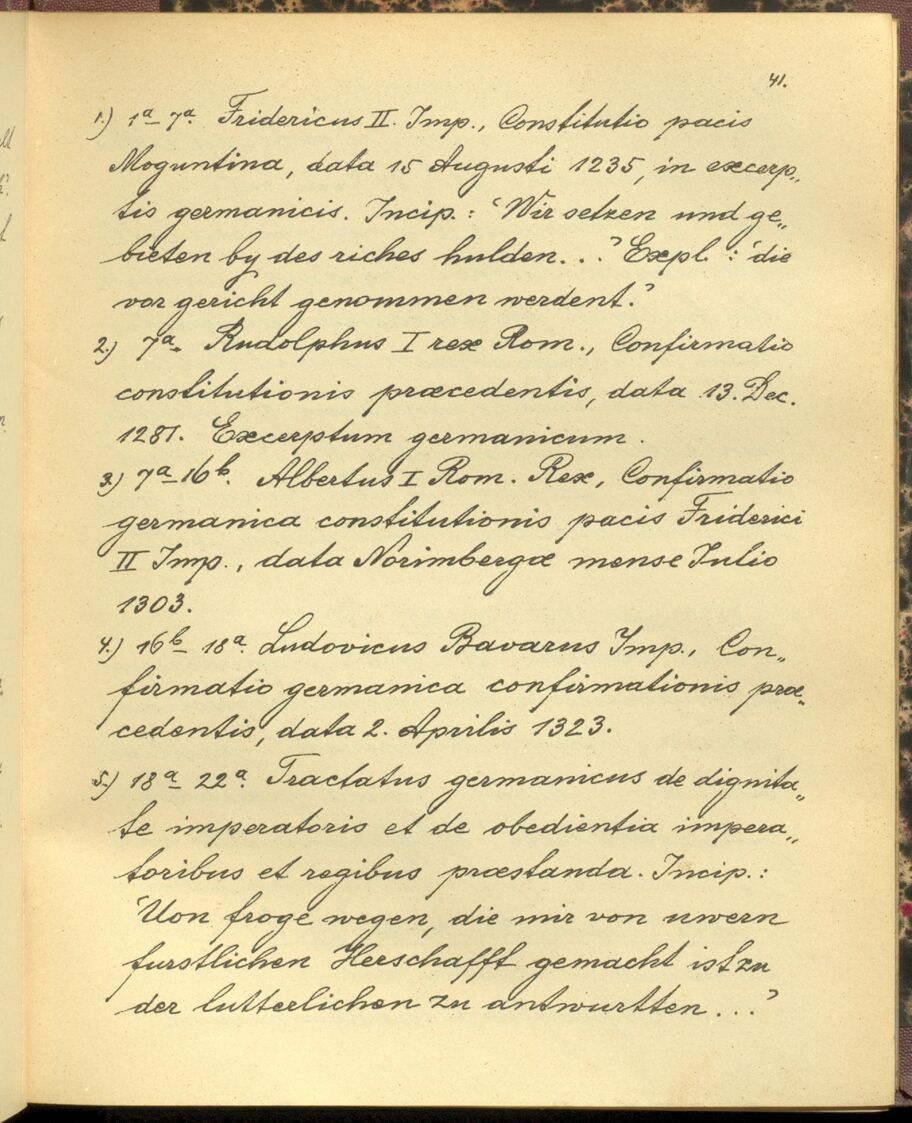 41.
1.) 1ª- 7ª. Fridericus II. Imp., Constitutio pacis
Moguntina, data 15 Augusti 1235, in excerp„
tis germanicis. Incip.: ‘Wir setzen und ge„
bieten by des riches hulden...’ Expl.: ‘die
vor gericht genommen werdent.’
2.) 7ª. Rudolphus I rex Rom., Confirmatio
constitutionis præcedentis, data 13. Dec.
1281. Excerptum germanicum.
3.) 7ª-16ᵇ. Albertus I Rom. Rex, Confirmatio
germanica constitutionis pacis Friderici
II Imp., data Norimbergæ mense Julio
1303.
4.) 16ᵇ- 18ª. Ludovicus Bavarus Imp., Con„
firmatio germanica confirmationis præ„
cedentis, data 2. Aprilis 1323.
5.) 18ª- 22ª. Tractatus germanicus de dignita„
te imperatoris et de obedientia impera„
toribus et regibus præstanda. Incip.:
‘Von froge wegen, die mir von uwern
furstlichen Herschafft gemacht ist zu
der lutterlichen zu antwurtten...’